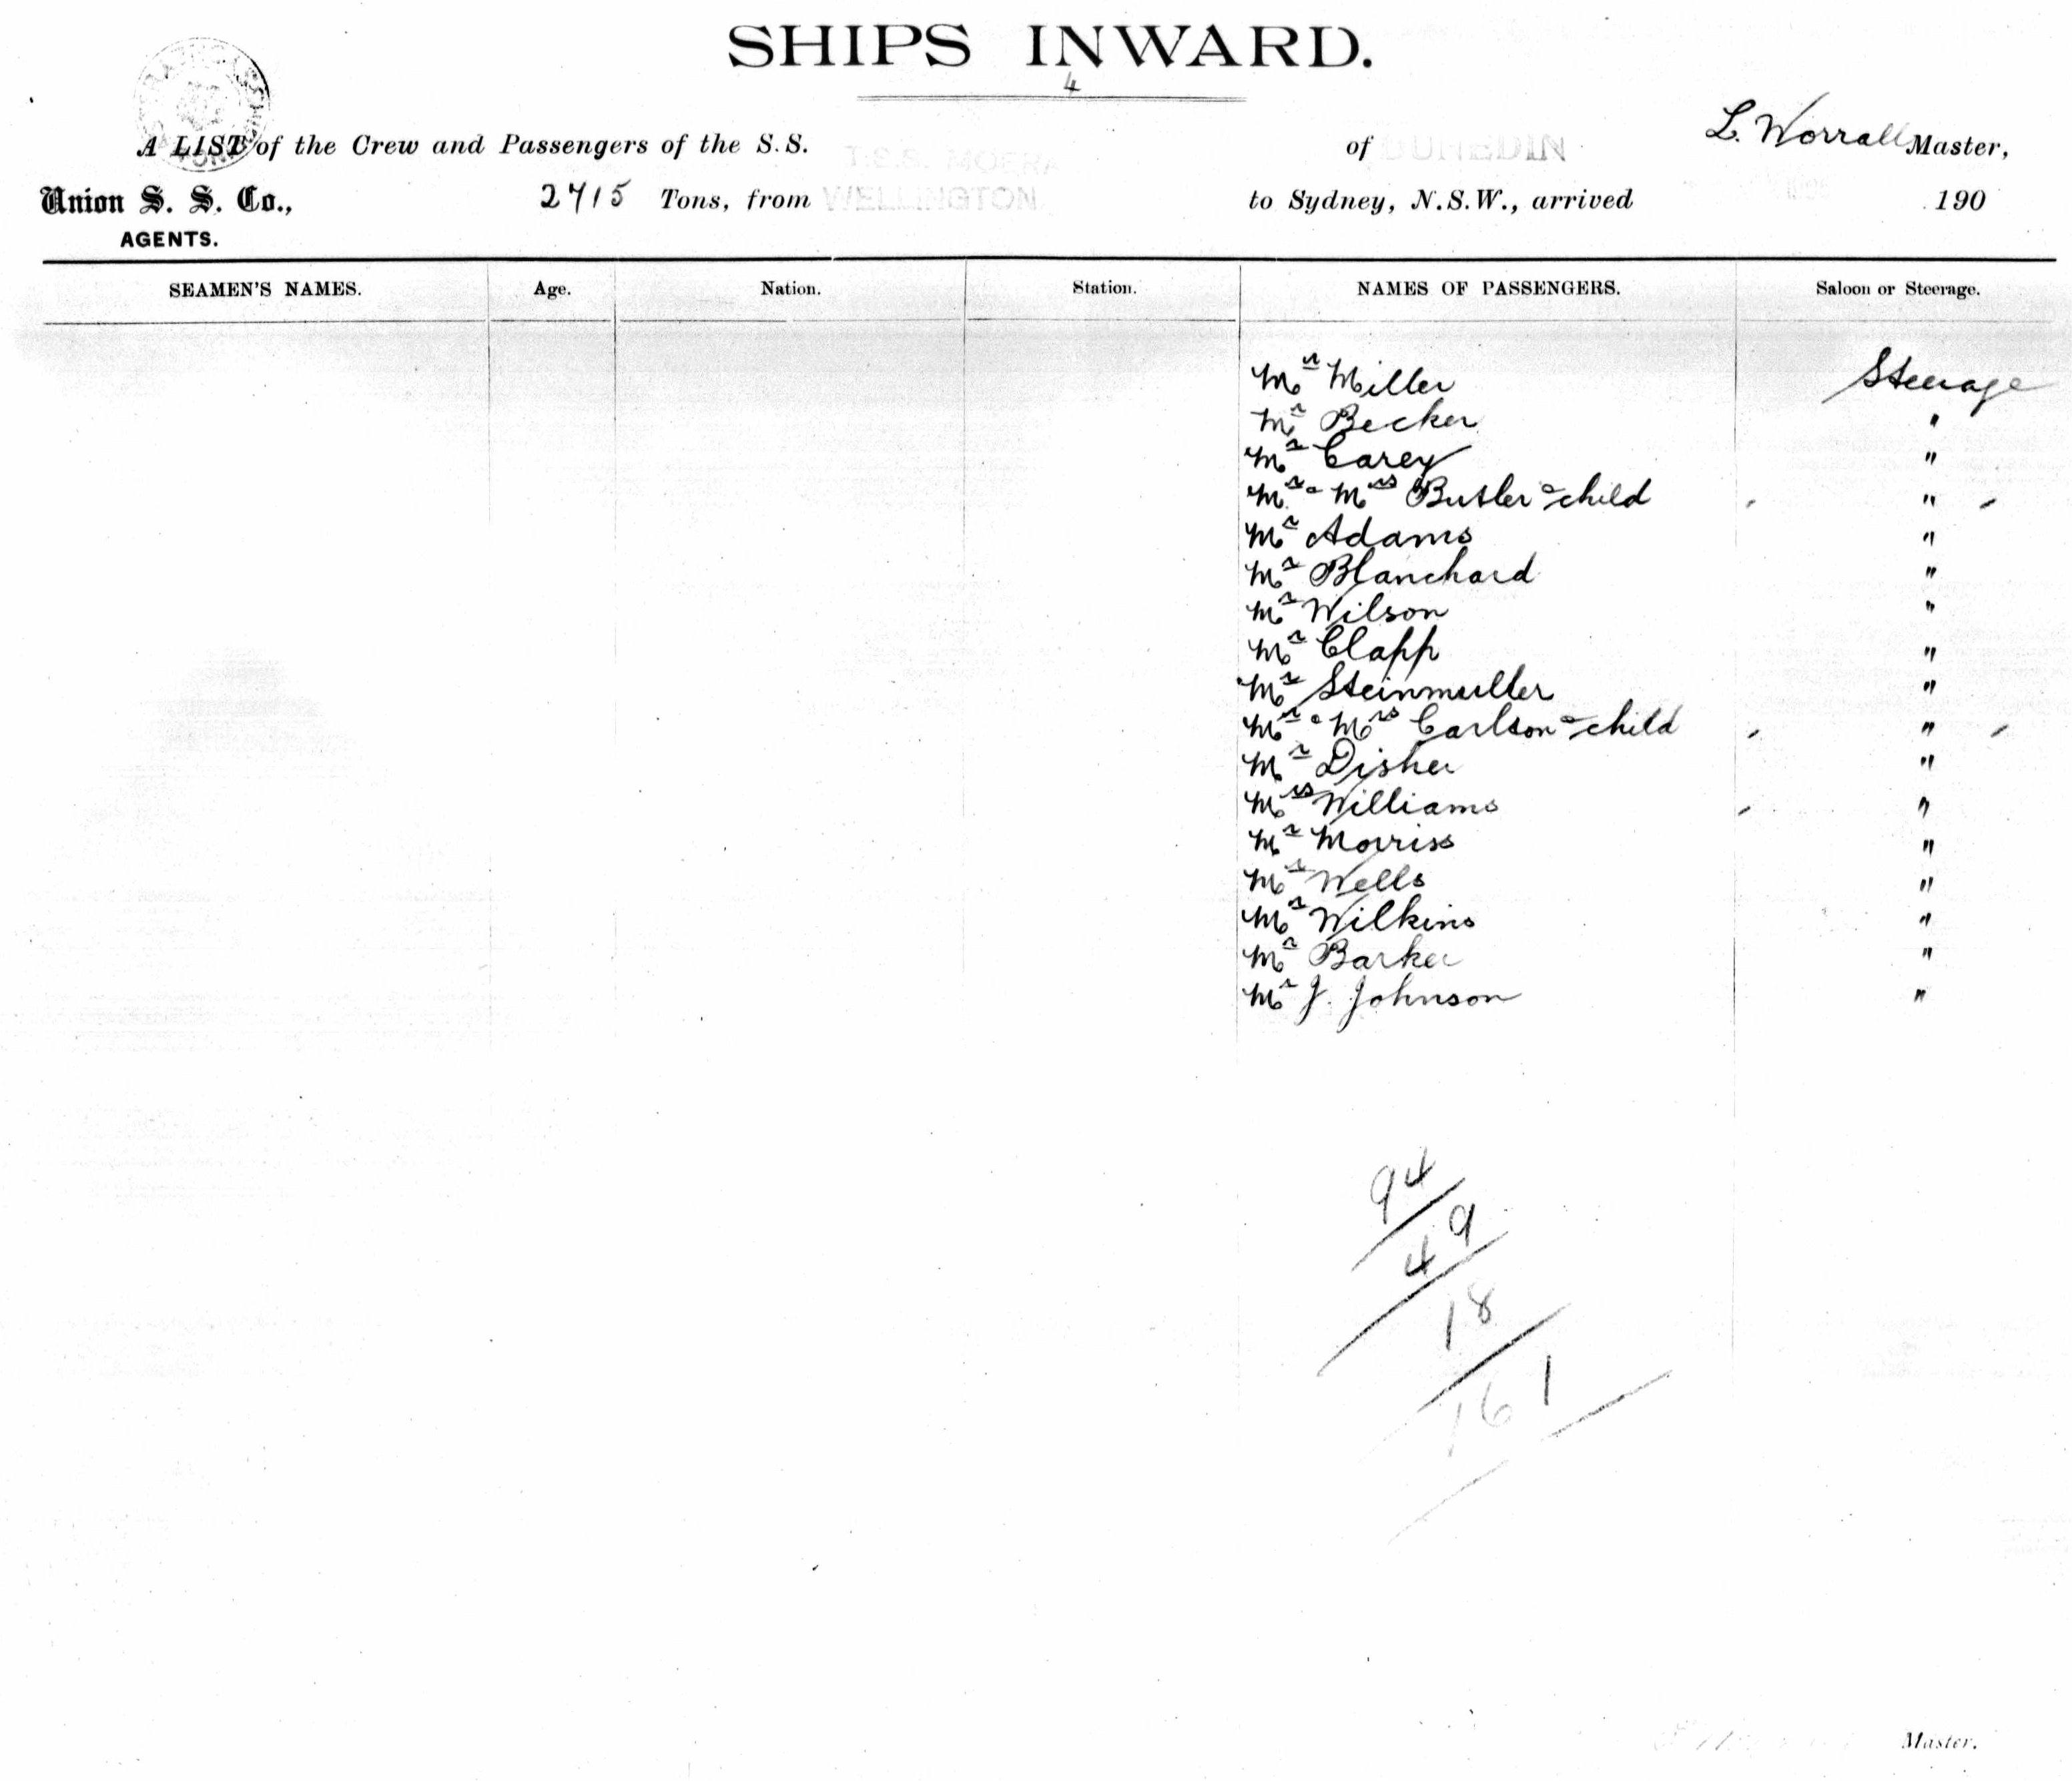 SHIPS INWARD.
4
A LIST of the Crew and Passengers of the S.S. T.S.S. MOERA of DUNEDIN L. Worrall Master,
Union S. S. Co., 2715 Tons, from WELLINGTON to Sydney, N.S.W., arrived 190
AGENTS.
SEAMEN'S NAMES. Age. Nation. Station. NAMES OF PASSENGERS. Saloon or Steerage.
Mr Miller Steerage
Mr Becker "
Mr Carey "
Mr & Mrs Butler & child "
Mr Adams "
Mr Blanchard "
Mr Wilson "
Mr Clapp "
Mr Steinmuller "
Mr & Mrs Carlson & child "
Mr Disher "
Mrs Williams "
Mr Morriss "
Mr Wells "
Mr Wilkins "
Mr Barker "
Mr J. Johnson "
94
9
4
18
1
16
Master.